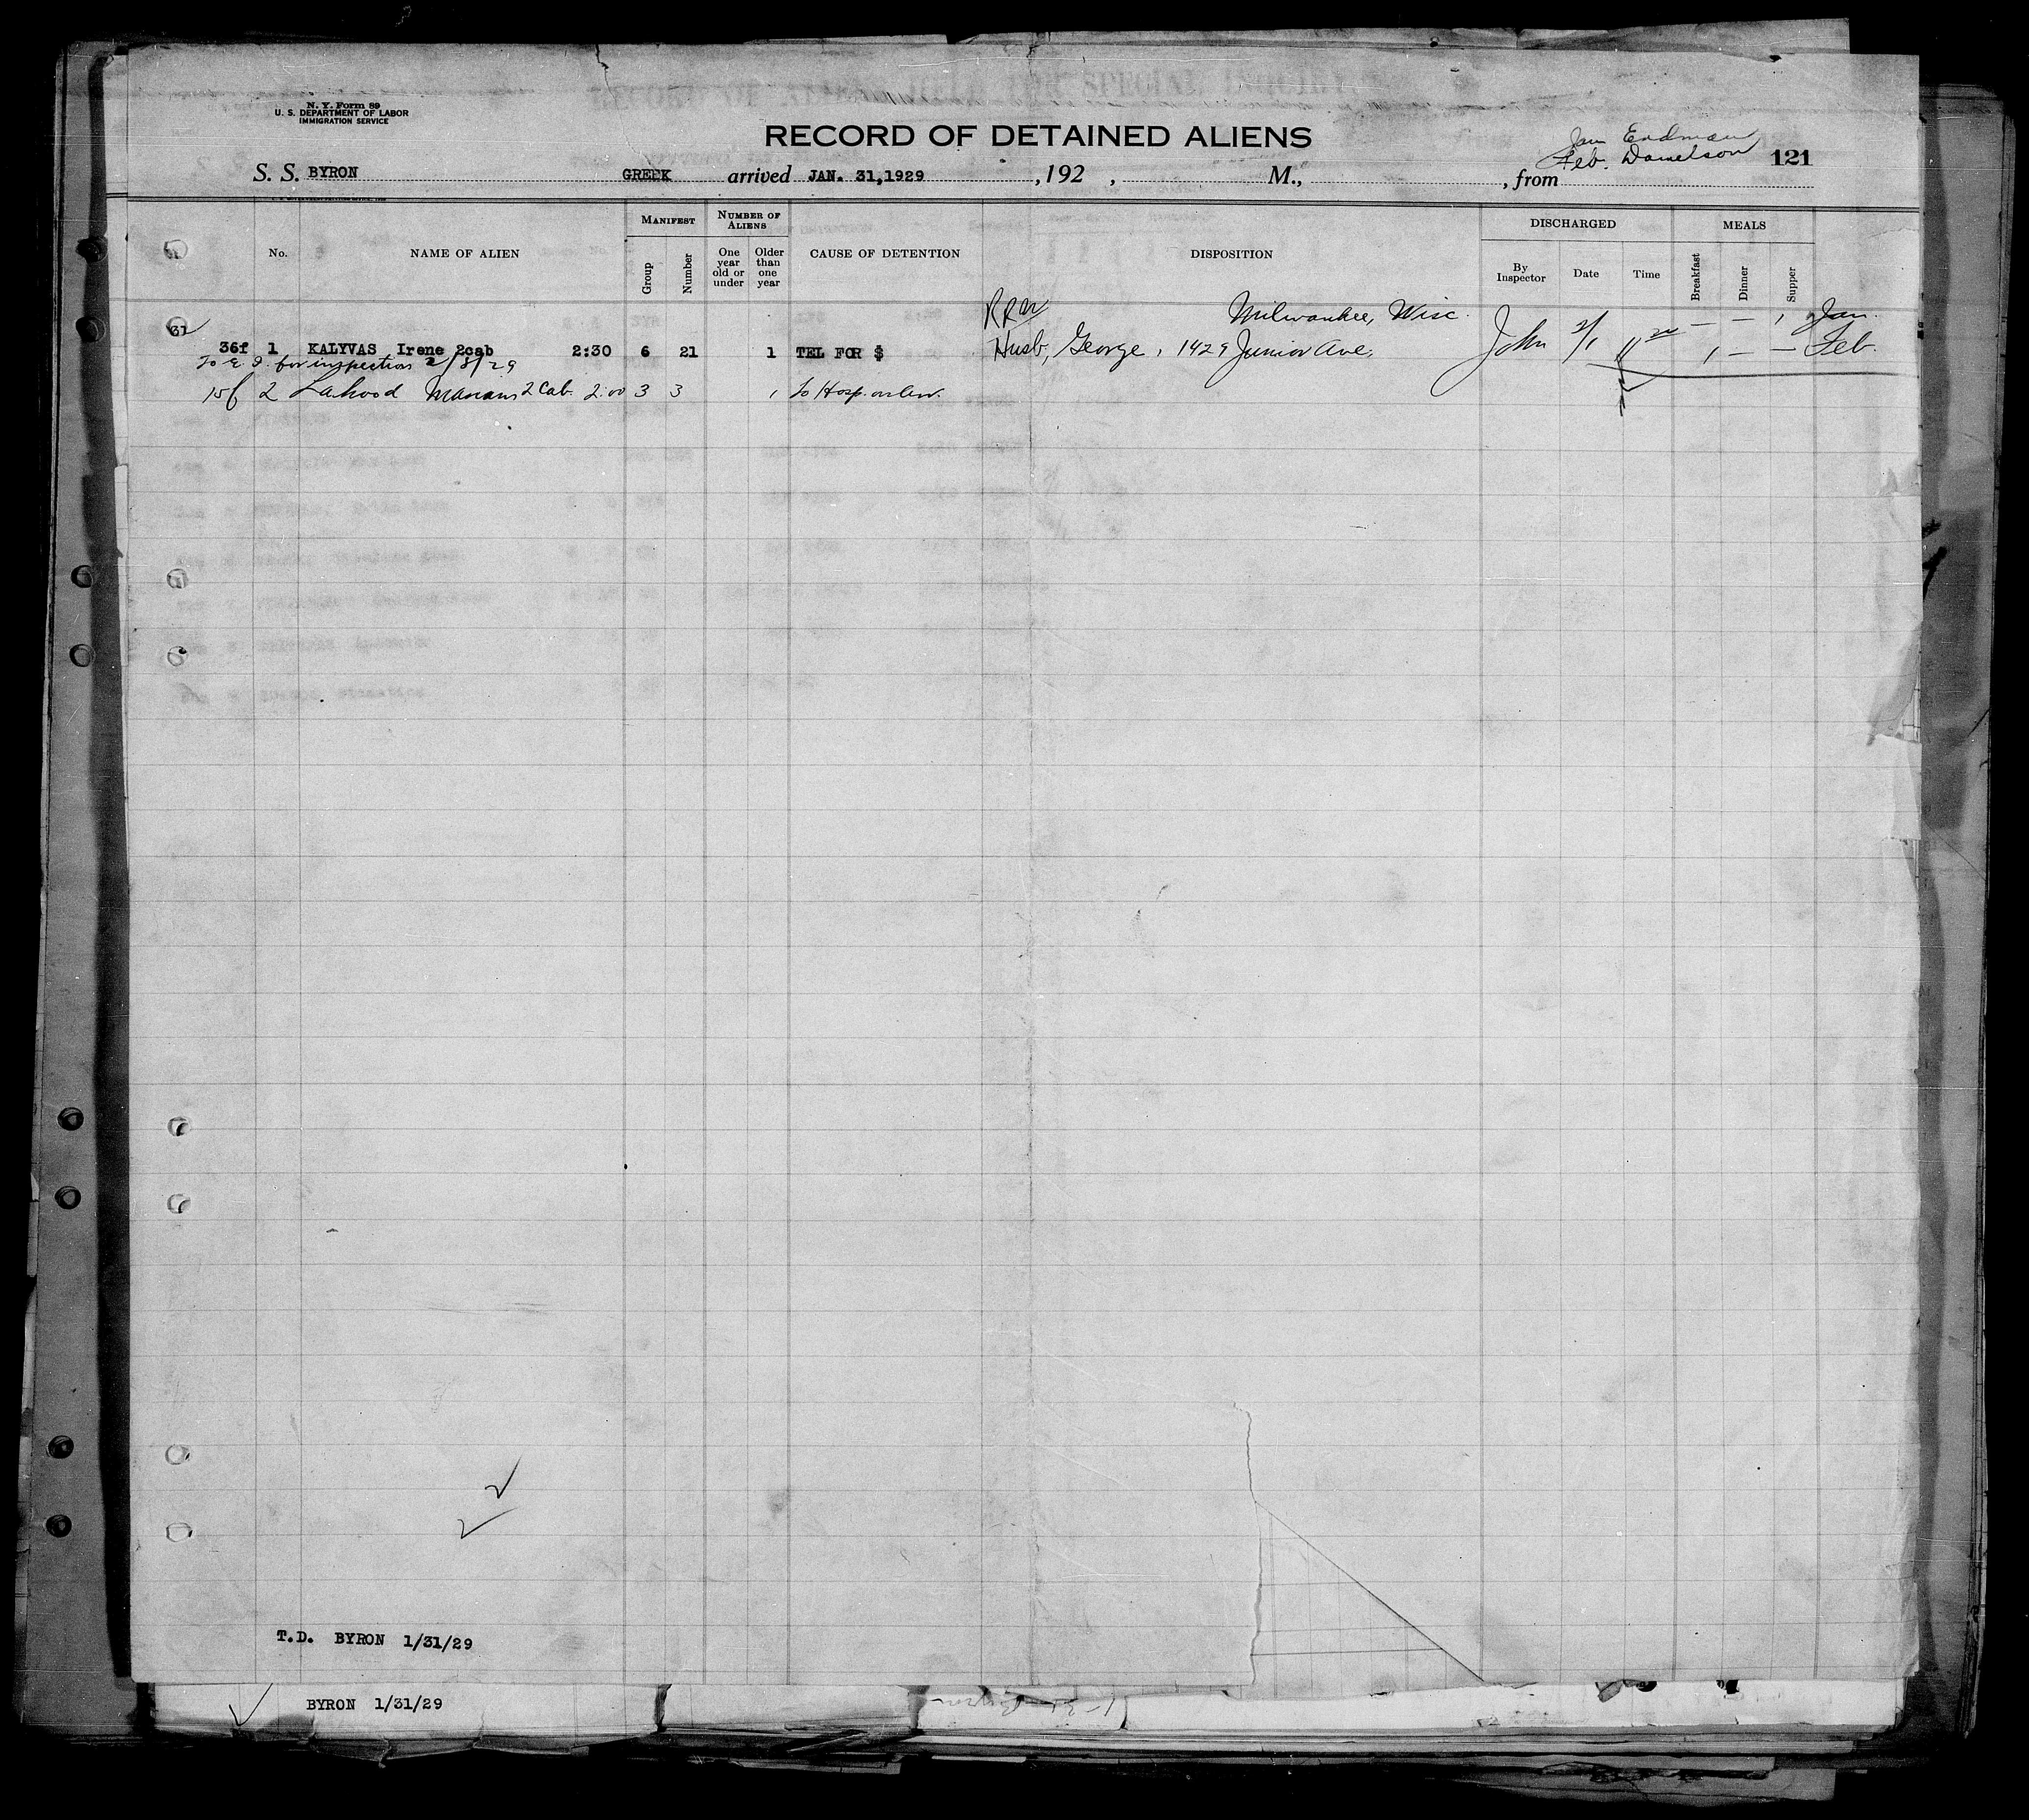 N. Y. Form 89
U. S. DEPARTMENT OF LABOR
IMMIGRATION SERVICE
RECORD OF DETAINED ALIENS
Jan Erdman
Feb. Danielson 121
S. S. BYRON GREEK arrived JAN. 31,1929 ,192 , M., , from
No. NAME OF ALIEN MANIFEST Group Number NUMBER OF ALIENS One year old or under Older than one year CAUSE OF DETENTION DISPOSITION DISCHARGED By Inspector Date Time MEALS Breakfast Dinner Supper
31 RRW Milwaukee, Wisc. — — 1 Jan.
36f 1 KALYVAS Irene 2cab 2:30 6 21 1 TEL FOR $ Husb, George, 1429 Junior Ave. John 2/1 1 — — Feb.
To E. I. for inspection 2/8/29
15f 2 Lahood 2 Cab. 2:00 3 3 1 to Hosp.
T.D. BYRON 1/31/29
BYRON 1/31/29